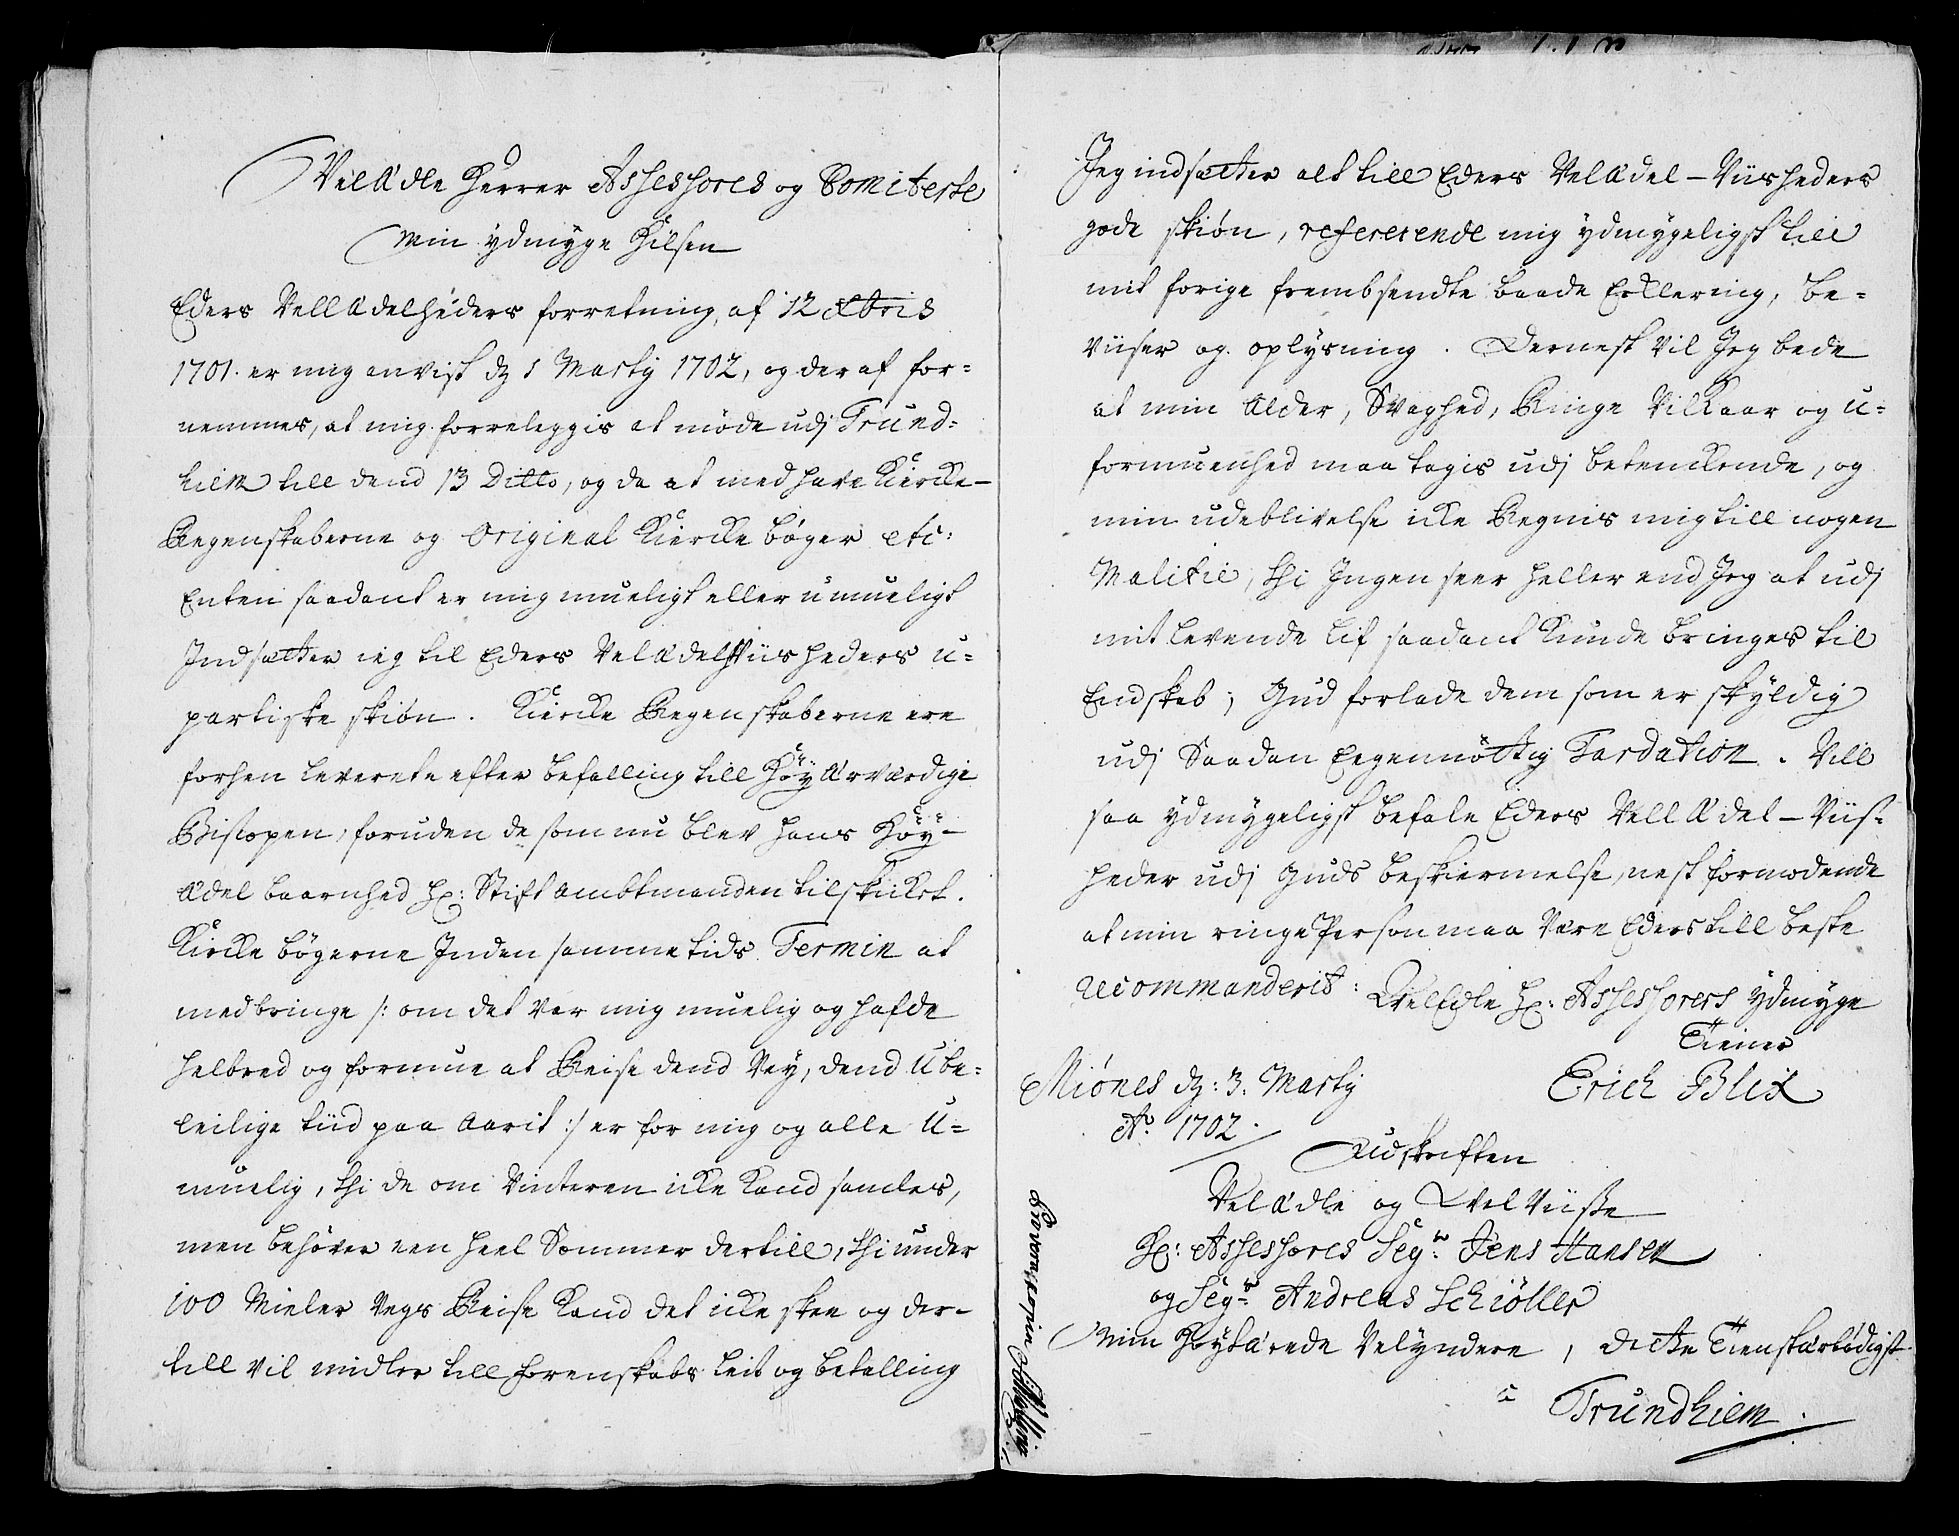 VelÆdle Herrer Assessores og Comiterte
Min ydmyge Hilsen
Eders VellÆdelheders forretning, af 12 Xbris
1701. er mig anvist dz 1 Marty 1702, og der af for=
nemmes, at mig forreleggis at møde udj Trund=
hiem till dend 13 Ditto, og da at med have Kircke-
Regenskaberne og Original Kiercke bøger etc:
Enten saadant er mig mueligt eller umueligt
Indsætter ieg til Eders VelÆdelWiisheders u=
partiske skiøn. Kircke Regenskaberne ere
forhen leverete efter befalling till HøyÆrværdige
Biskopen, foruden de som nu blev hans Høy-
Ædelbaarnhed Hr: Stiftambtmanden tilskicket.
Kircke bøgerne Inden samme tids Termin at
medbringe /: om det var mig muelig og hafde
helbred og formue at Reise dend Vey, dend ube=
leilige tiid paa Aarit :/ er for mig og alle U=
muelig, thi de om Vinteren icke Kand samles,
men behøver een heel Sommer dertill, thi under
100 Mieler Vegs Reise Kand det icke skee og der-
till vil midler till forenskabs leit og betalling
Jeg indsætter alt till Eders VelÆdel-Viisheders
gode skiøn, refererende mig ydmygeligst till
mit forige frembsendte baade Erklering, be=
viiser og oplysning. Dernest Vil Jeg bede
at min Alder, Svaghed, Ringe Vilkaar og u=
formuenhed maa tagis udj betenckende, og
min udeblivelse icke Regnis mig till nogen
Malitie, thi Ingen seer heller end Jeg at udj
mit levende lif saadant Kunde bringes til
Endskab; Gud forlade dem som er skyldig
udj Saadan Eegennøttig Tardation. Vill
saa ydmygeligst befale Eders VellÆdel-Viis=
heder udj Guds beskiermelse, nest formodende
at min ringe Person maa Være Eders till beste
recommanderit: VelEdle Hr: Assessorers ydmyge
Tiener
Miønes dz: 3. Marty Erich Blix
Ao. 1702.
Udskriften
VelÆdle og VelViisse
Hr: Assessores Segr. Jens Hansen
og Segr. Andreas Schiøller
Min Høytærede Velyndere, dette Tienstærbødigst
i Trundhiem.